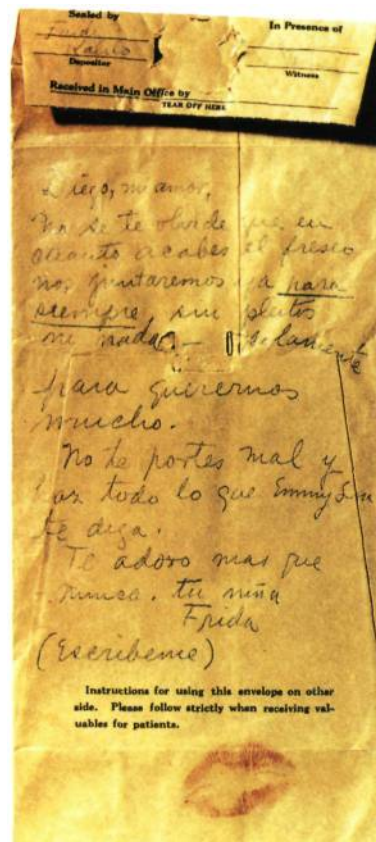 Sealed by
In Presence of
Depositor
Witness
Received in Main Office by
TEAR OFF HERE
Diego, mi amor,
No se te olvide que en
cuanto acabes el fresco
nos juntaremos ya para
siempre, sin pleitos
ni nada, - solamente
para querernos
mucho.
No te portes mal y
haz todo lo que Emmy Lou
te diga.
Te adoro mas que
nunca. tu niña
Frida
(Escribeme)
Instructions for using this envelope on other
side. Please follow strictly when receiving val-
uables for patients.